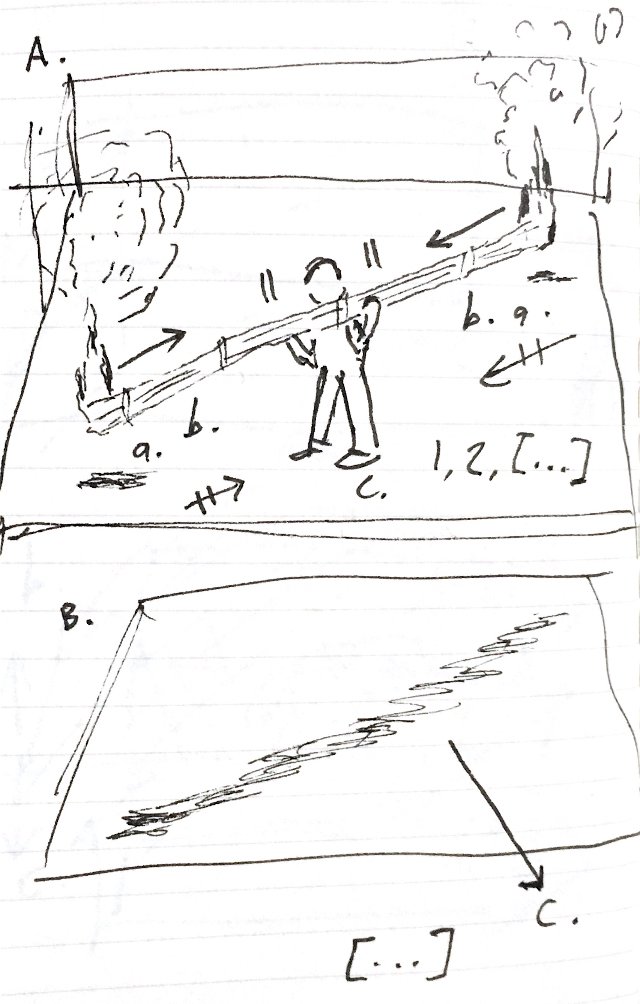 A.
b. a.
a. b.
1, 2, [...]
c.
B.
C.
[...]